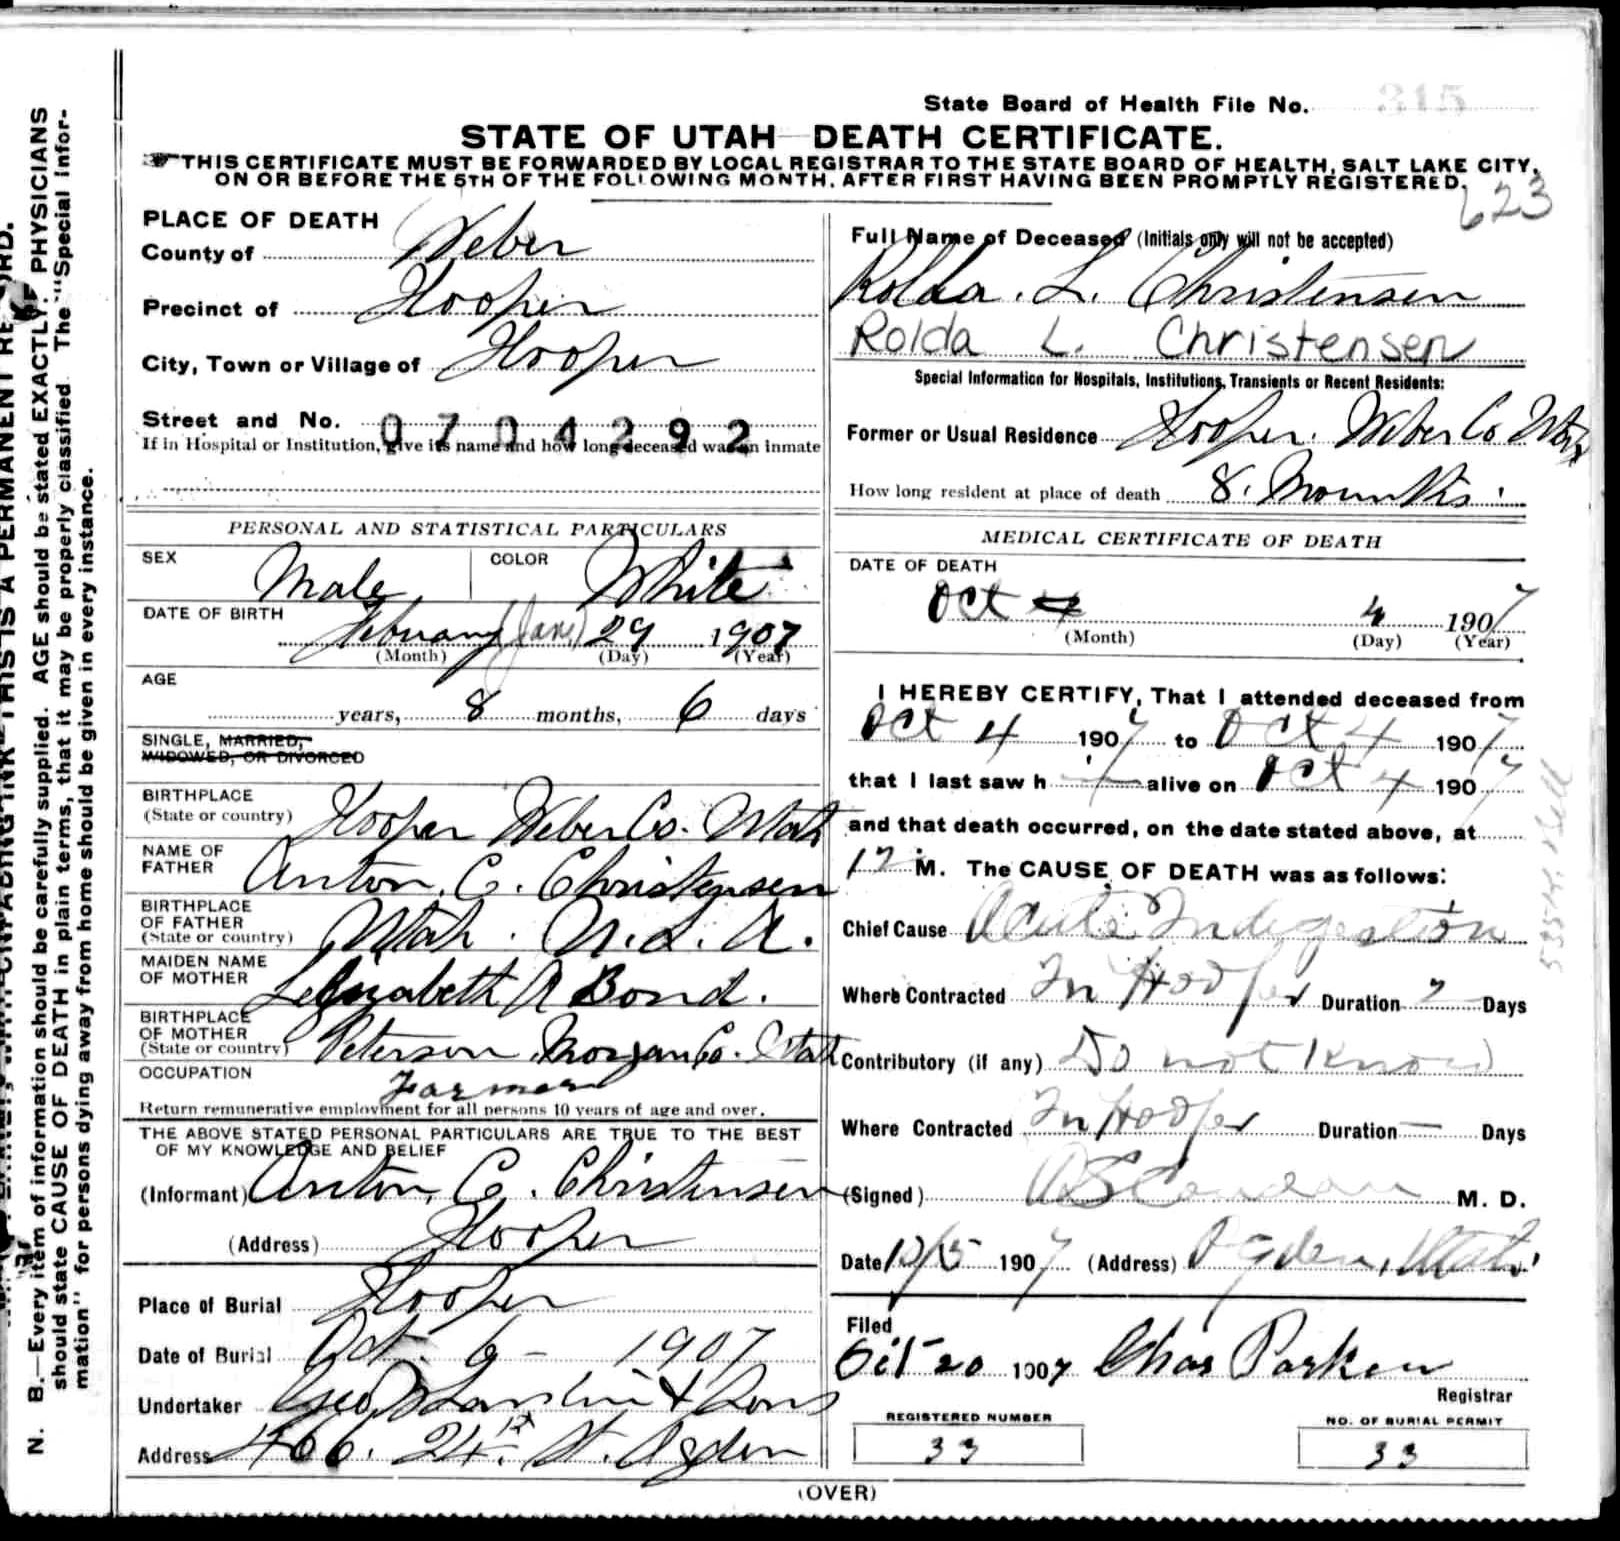 State Board of Health File No. 315
STATE OF UTAH—DEATH CERTIFICATE.
THIS CERTIFICATE MUST BE FORWARDED BY LOCAL REGISTRAR TO THE STATE BOARD OF HEALTH, SALT LAKE CITY,
ON OR BEFORE THE 5TH OF THE FOLLOWING MONTH, AFTER FIRST HAVING BEEN PROMPTLY REGISTERED.
623
PLACE OF DEATH
County of Weber
Precinct of Hooper
City, Town or Village of Hooper
Street and No. 0704292
If in Hospital or Institution, give its name and how long deceased was an inmate
PERSONAL AND STATISTICAL PARTICULARS
SEX Male COLOR White
DATE OF BIRTH
February (Jan) 29 1907
(Month) (Day) (Year)
AGE
years, 8 months, 6 days
SINGLE, MARRIED,
WIDOWED, OR DIVORCED
BIRTHPLACE
(State or country) Hooper Weber Co. Utah
NAME OF
FATHER Anton. C. Christensen
BIRTHPLACE
OF FATHER
(State or country) Utah.
MAIDEN NAME
OF MOTHER A Bond.
BIRTHPLACE
OF MOTHER
(State or country) Peterson Morgan Co. Utah
OCCUPATION Farmer
Return remunerative employment for all persons 10 years of age and over.
THE ABOVE STATED PERSONAL PARTICULARS ARE TRUE TO THE BEST
OF MY KNOWLEDGE AND BELIEF
(Informant) Anton, C. Christensen
(Address) Hooper
Place of Burial Hooper
Date of Burial Oct. 6 - 1907
Undertaker & Sons
Address 466. 24th St. Ogden
Full Name of Deceased (Initials only will not be accepted)
Rolda. L. Christensen
Rolda L. Christensen
Special Information for Hospitals, Institutions, Transients or Recent Residents:
Former or Usual Residence Hooper. Weber Co Utah
How long resident at place of death 8. Mounths.
MEDICAL CERTIFICATE OF DEATH
DATE OF DEATH
Oct 4 4 1907
(Month) (Day) (Year)
I HEREBY CERTIFY, That I attended deceased from
Oct 4 1907 to Oct 4 1907
that I last saw h — alive on Oct 4 1907
and that death occurred, on the date stated above, at
12 M. The CAUSE OF DEATH was as follows:
Chief Cause Acute Indigestion
Where Contracted In Hooper Duration Days
Contributory (if any) Do not Know
Where Contracted In Hooper Duration — Days
(Signed) M. D.
Date 10/15 1907 (Address) Ogden, Utah
Filed
Oct 20 1907 Chas Parker
Registrar
REGISTERED NUMBER
33
NO. OF BURIAL PERMIT
33
(OVER)
N. B.—Every item of information should be carefully supplied. AGE should be stated EXACTLY. PHYSICIANS
should state CAUSE OF DEATH in plain terms, that it may be properly classified. The "Special Infor-
mation" for persons dying away from home should be given in every instance.